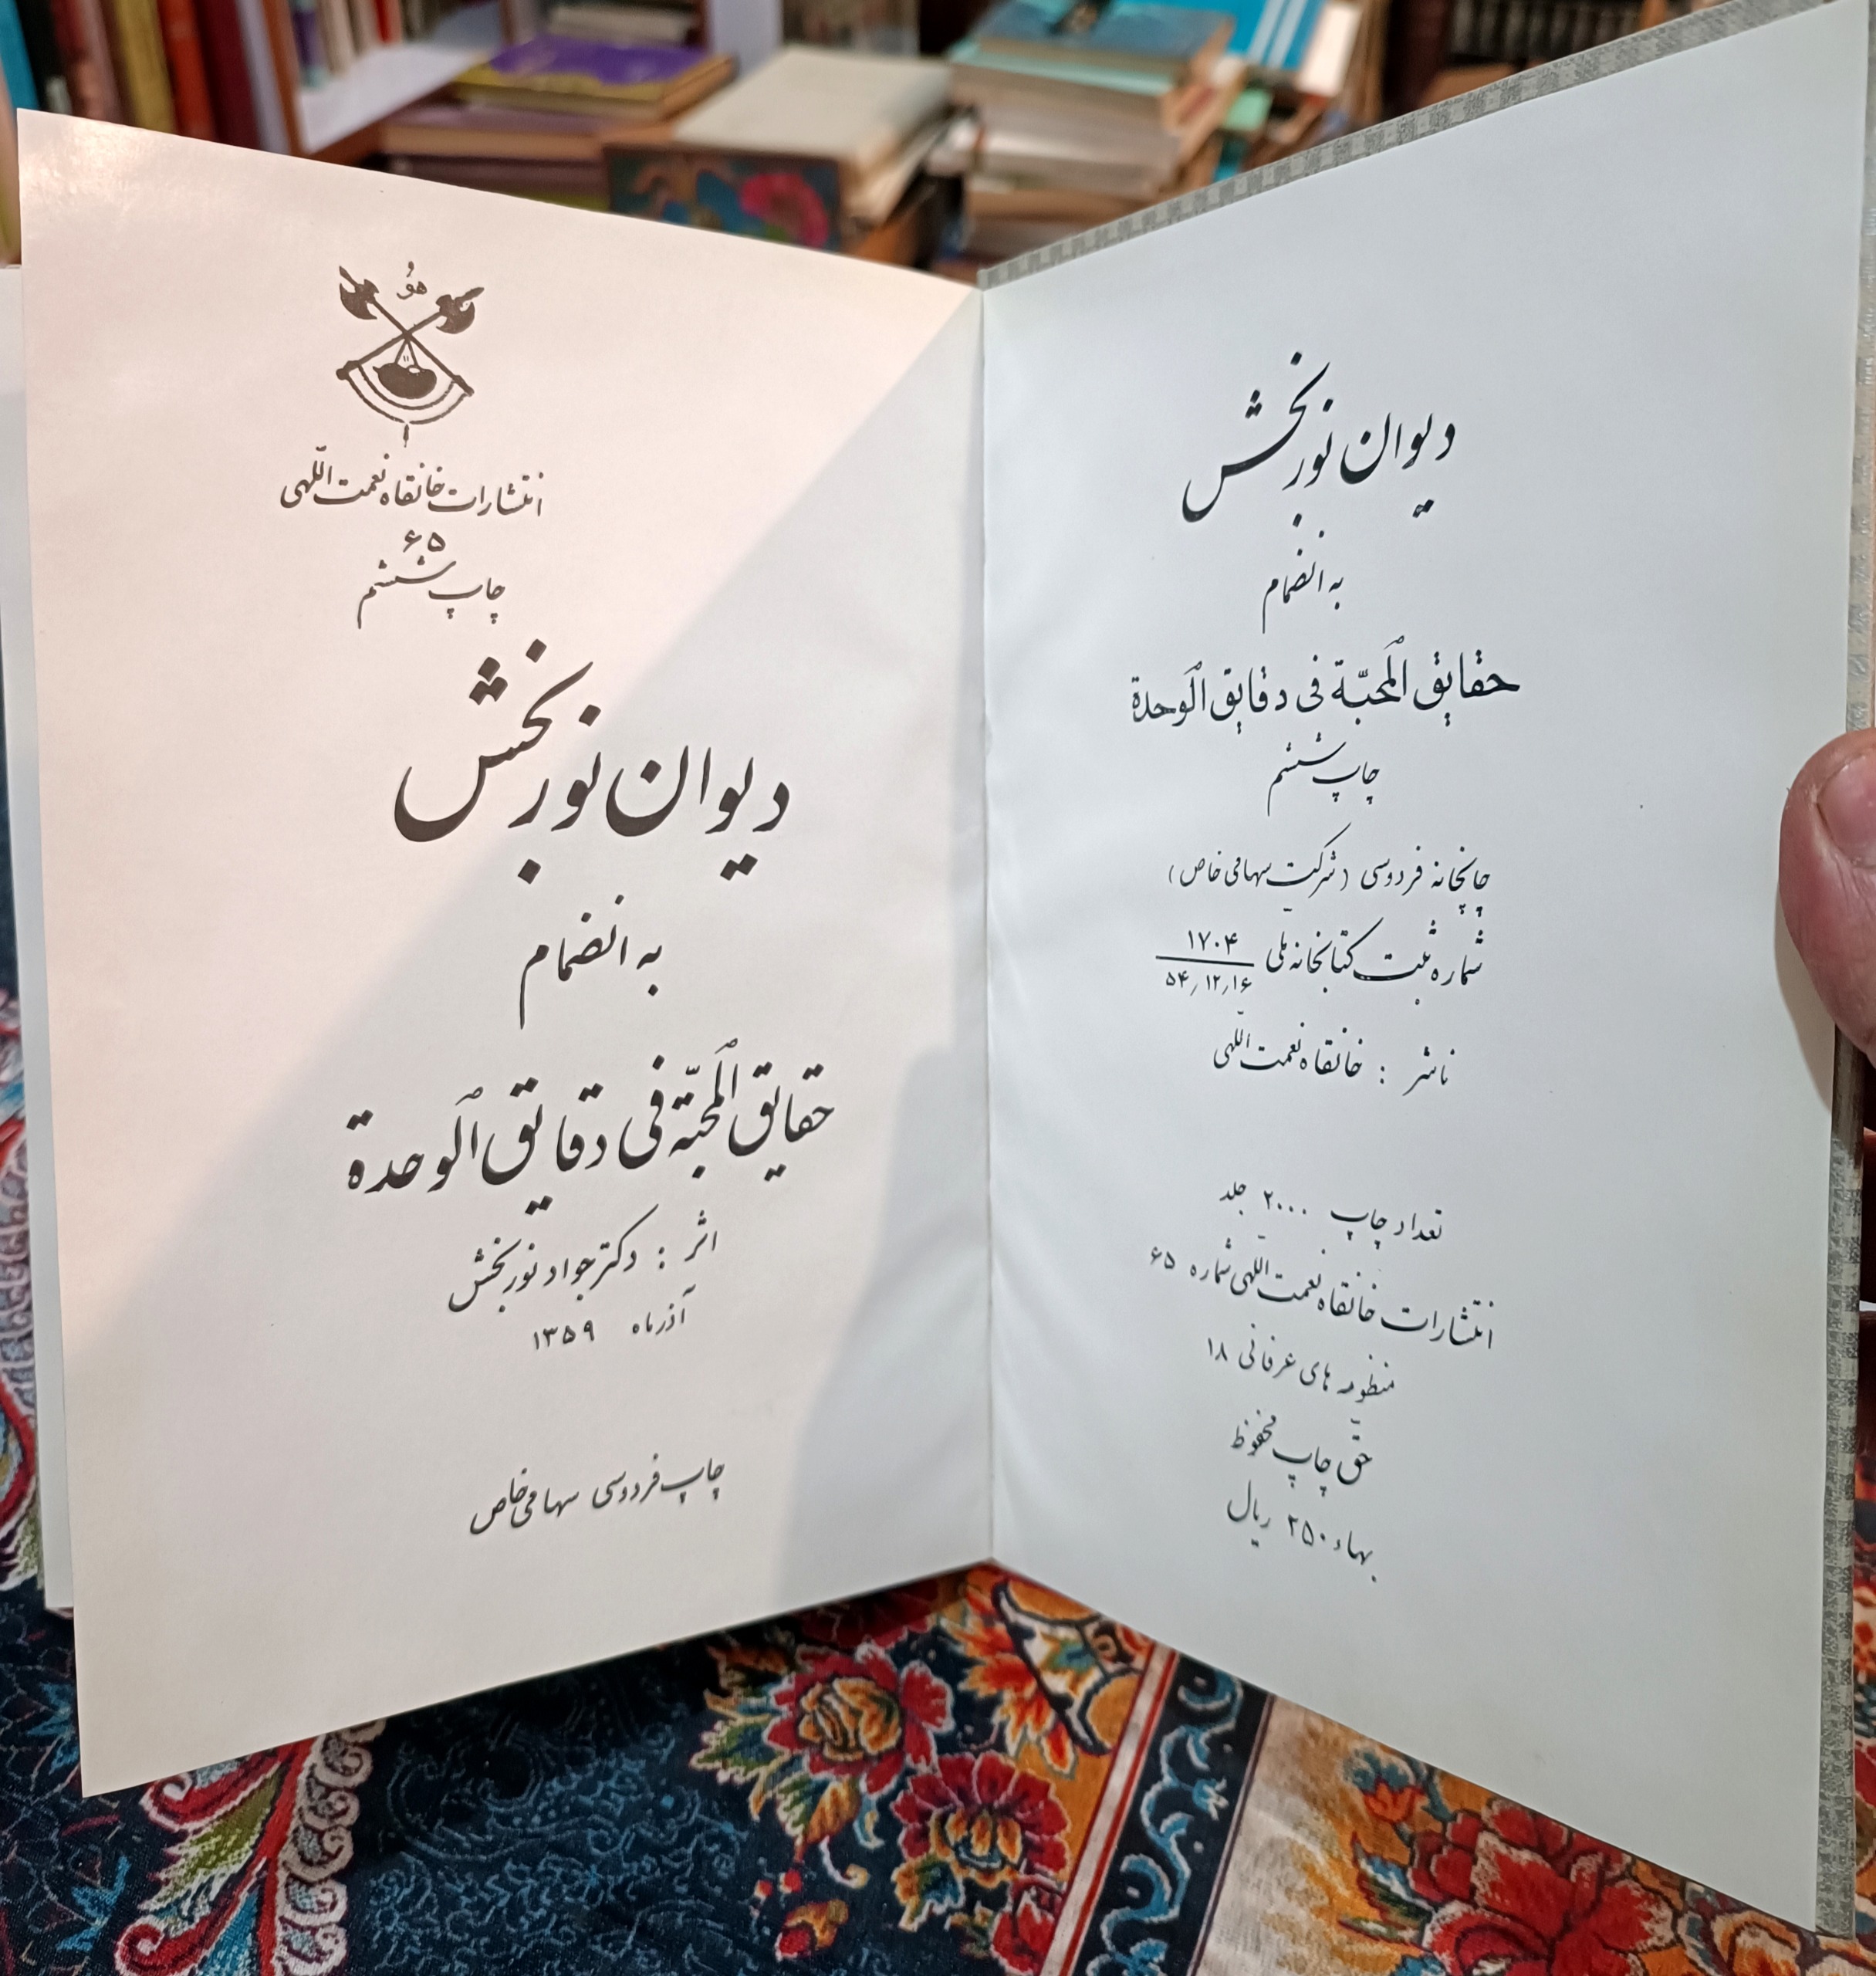 دیوان نوربخش
به انضمام
حقایق المحبّة فی دقایق الوحدة
چاپ ششم
چاپخانه فردوسی (شرکت سهامی خاص)
شماره ثبت کتابخانه ملی ۱۷۰۴
۵۴/۱۲/۱۶
ناشر : خانقاه نعمت اللّهی
تعداد چاپ ۲۰۰۰ جلد
انتشارات خانقاه نعمت اللّهی شماره ۶۵
منظومه های عرفانی ۱۸
حقّ چاپ محفوظ
بهاء ۲۵۰ ریال
هو
۱۱
انتشارات خانقاه نعمت اللّهی
۶۵
چاپ ششم
دیوان نوربخش
به انضمام
حقایق المحبّة فی دقایق الوحدة
اثر : دکتر جواد نوربخش
آذرماه ۱۳۵۹
چاپ فردوسی سهامی خاص